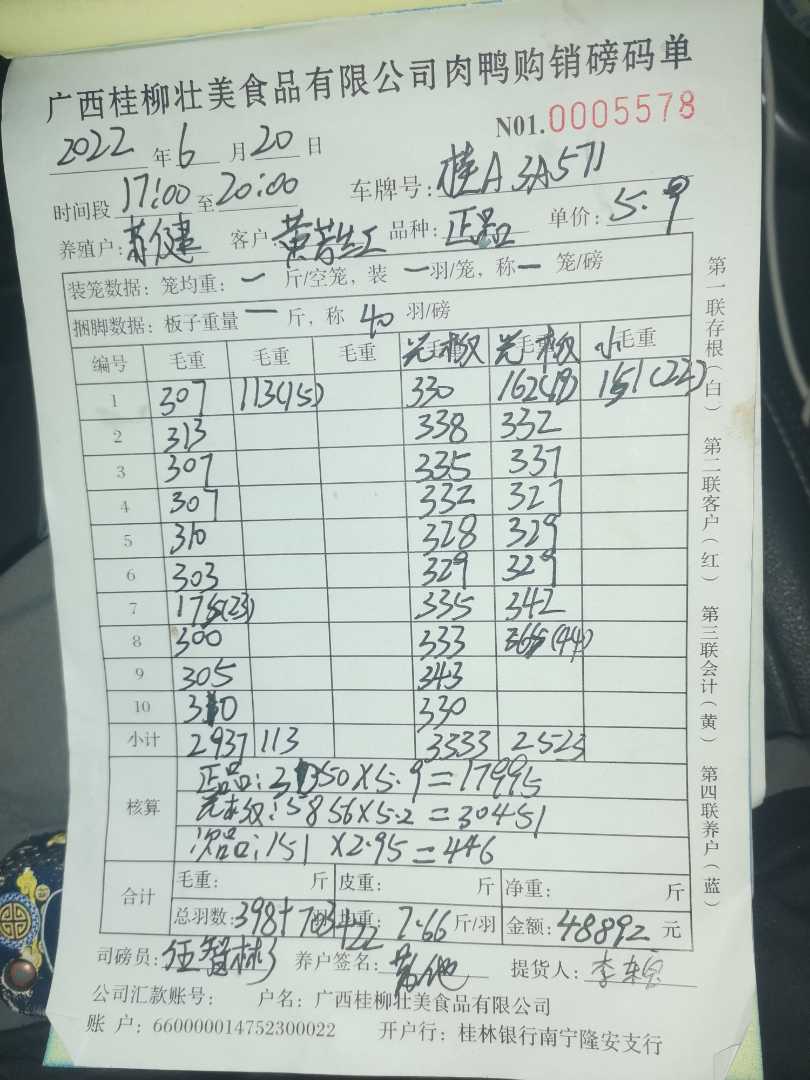 广西桂柳壮美食品有限公司肉鸭购销磅码单
2022 年 6 月 20 日 N01.0005578
时间段 17:00 至 20:00 车牌号: 桂A 3A571
养殖户: 健 客户: 黄 品种: 正品 单价: 5.9
装笼数据: 笼均重: 一 斤/空笼, 装 一 羽/笼, 称 一 笼/磅
捆脚数据: 板子重量 一 斤, 称 40 羽/磅
编号 毛重 毛重 毛重 毛重 光板 毛重 光板 毛重 小
1 307 113(15) 330 162(19) 151(22)
2 313 338 332
3 307 335 337
4 307 332 327
5 310 328 329
6 303 329 329
7 175(23) 335 342
8 300 333 365(44)
9 305 343
10 310 330
小计 2937 113 3333 2523
核算
正品: 3050×5.9=17995
光板: 5856×5.2=30451
次品: 151×2.95=446
合计 毛重: 斤 皮重: 斤 净重: 斤
总羽数: 398+703+22 均重: 7.66 斤/羽 金额: 48892 元
司磅员: 伍智彬 养户签名: 提货人: 李
公司汇款账号: 户名: 广西桂柳壮美食品有限公司
账 户: 660000014752300022 开户行: 桂林银行南宁隆安支行
第一联存根(白) 第二联客户(红) 第三联会计(黄) 第四联养户(蓝)